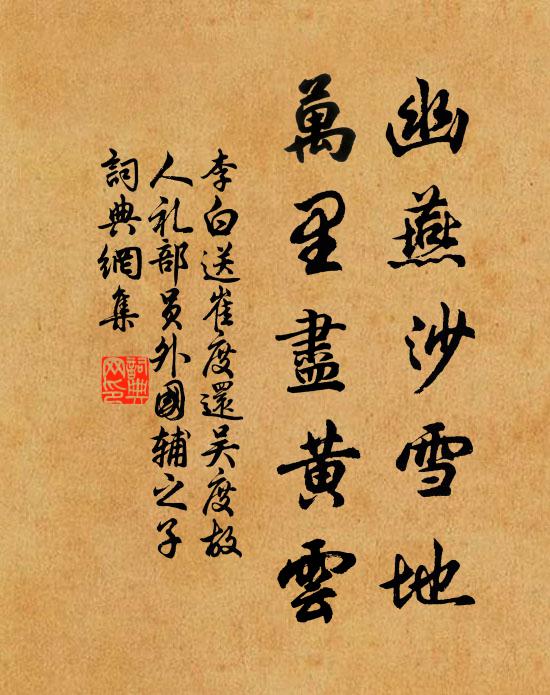 幽燕沙雪地
萬里盡黄雲
李白送崔度還吴度故
人礼部員外國輔之子
詞典網集
詞典
网印